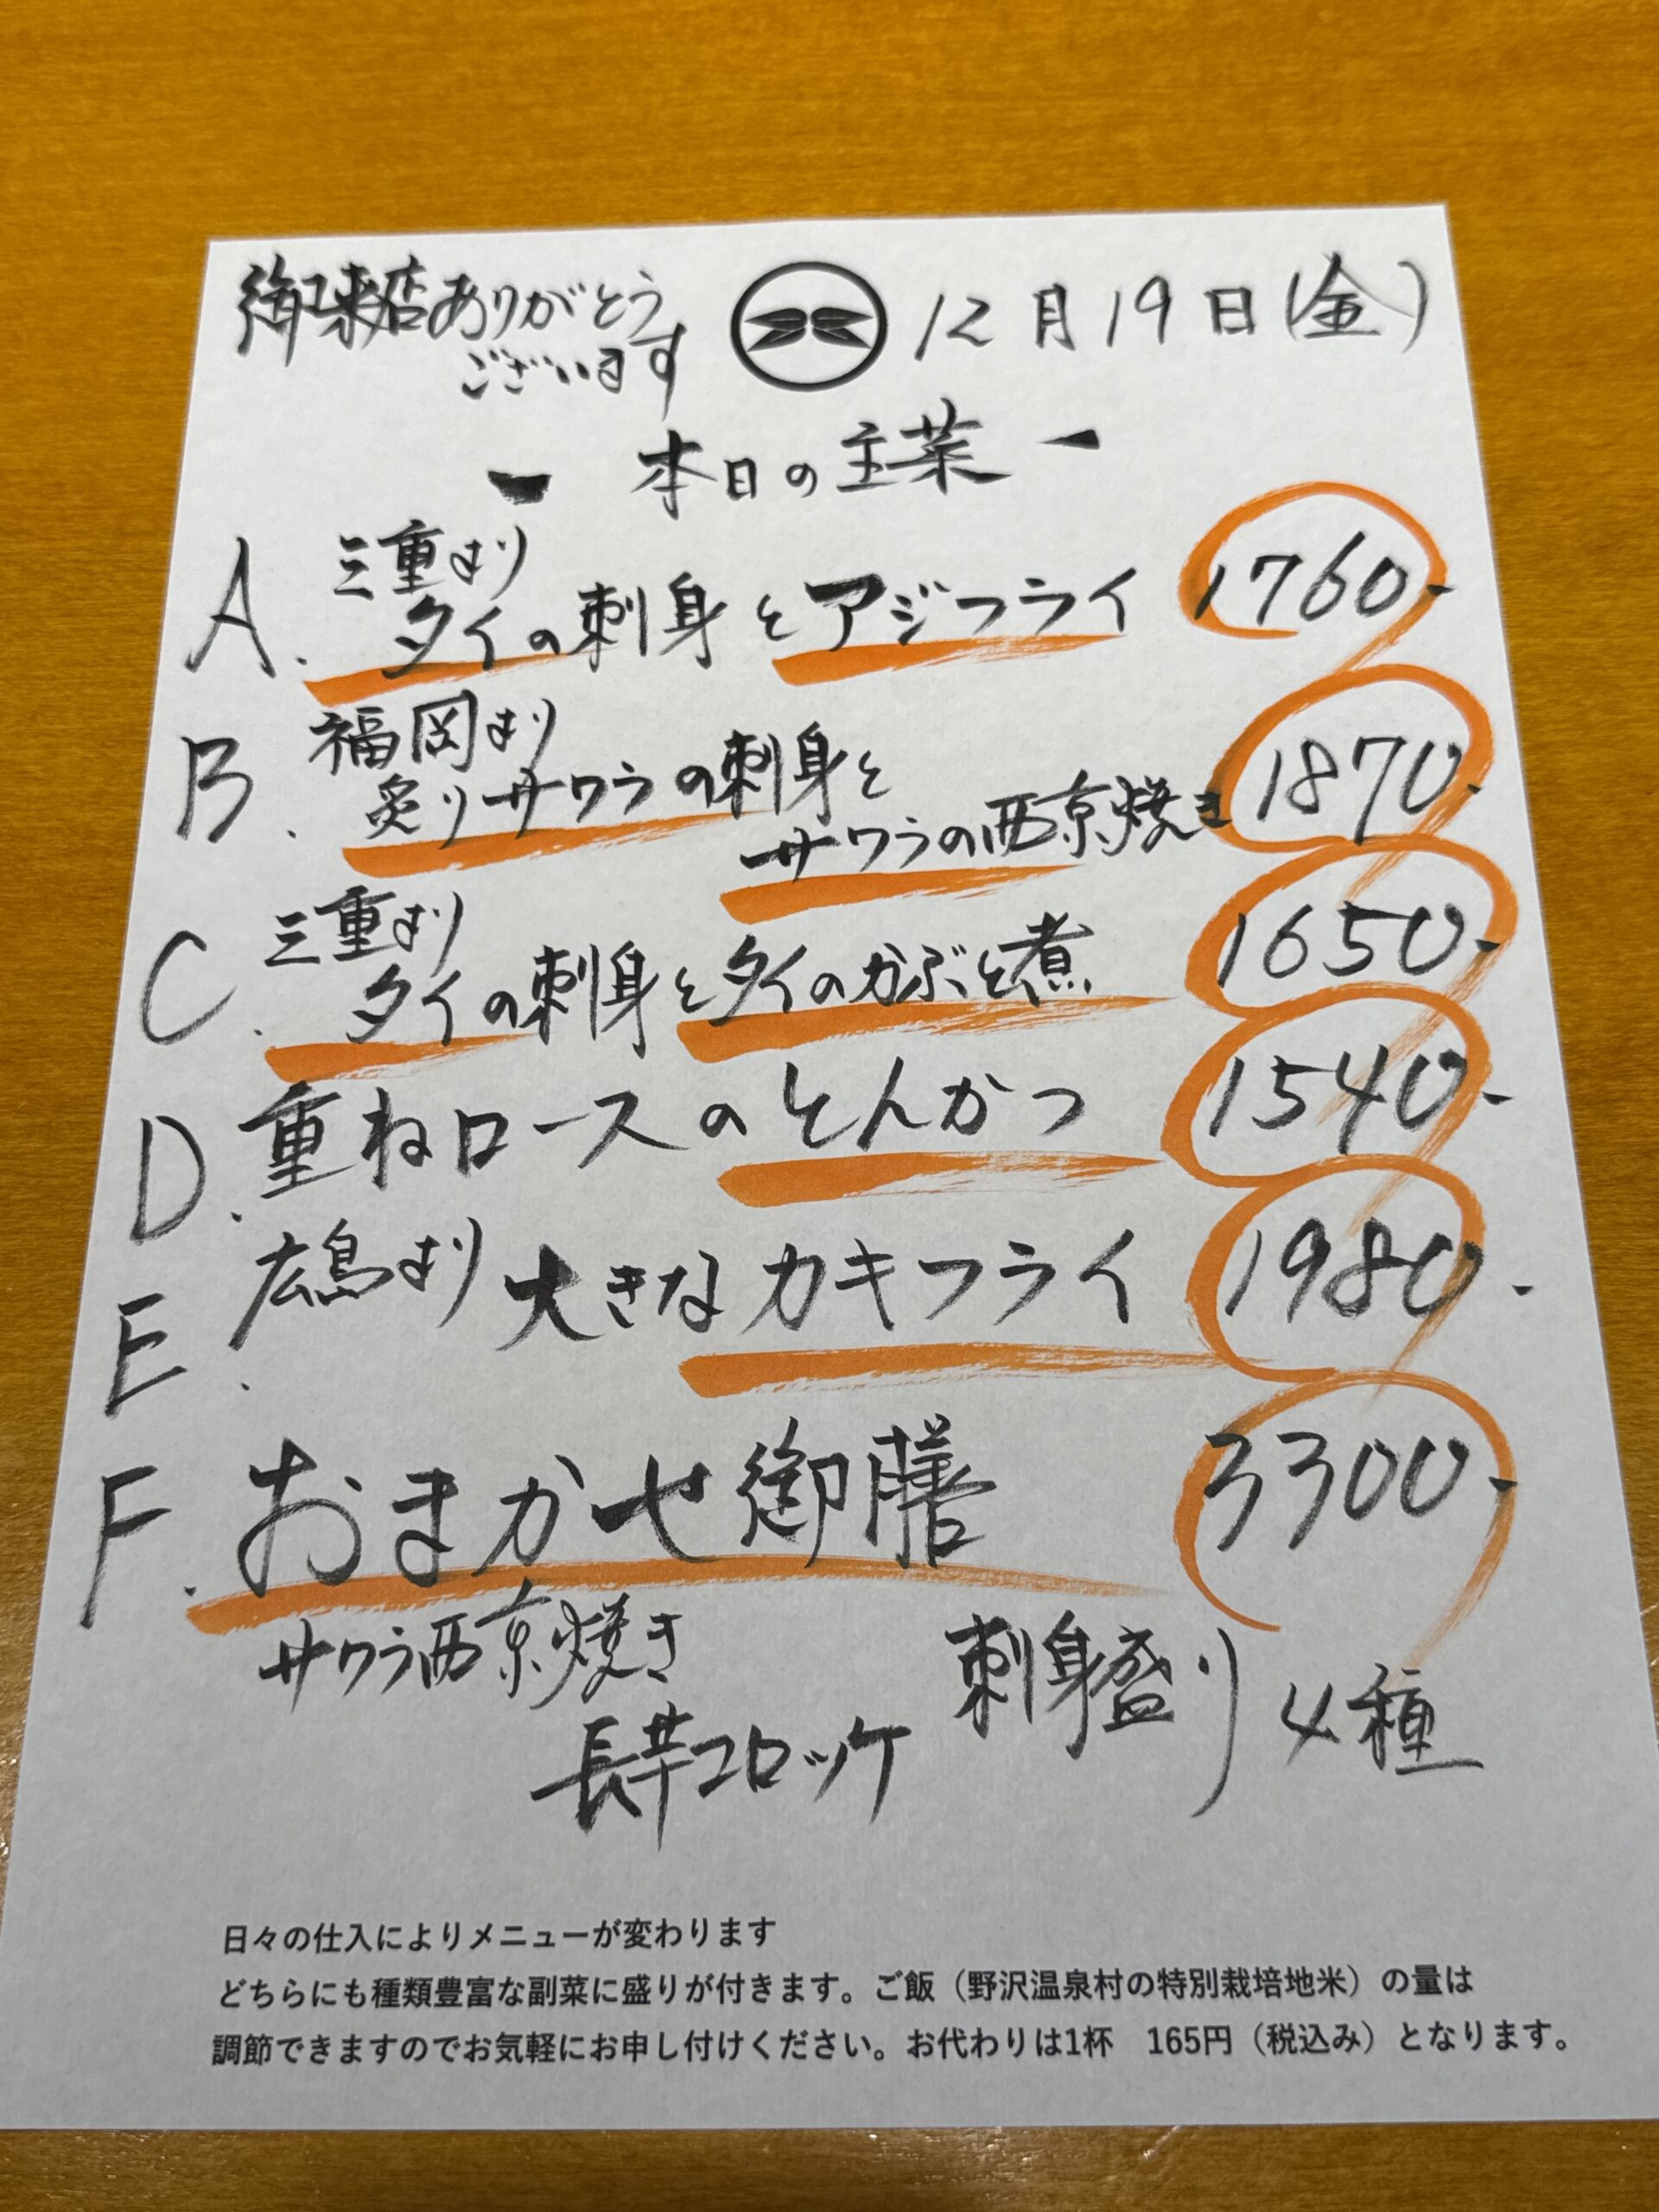 御来店ありがとう
ございます
12月19日(金)
- 本日の主菜 -
A. 三重より
タイの刺身とアジフライ 1760-
B. 福岡より
炙りサワラの刺身と
サワラの西京焼き 1870-
C. 三重より
タイの刺身とタイのかぶと煮 1650-
D. 重ねロースのとんかつ 1540-
E. 広島より 大きなカキフライ 1980-
F. おまかせ御膳 3300-
サワラ西京焼き
刺身盛り4種
長芋コロッケ
日々の仕入によりメニューが変わります
どちらにも種類豊富な副菜に盛りが付きます。ご飯（野沢温泉村の特別栽培地米）の量は
調節できますのでお気軽にお申し付けください。お代わりは1杯　165円（税込み）となります。